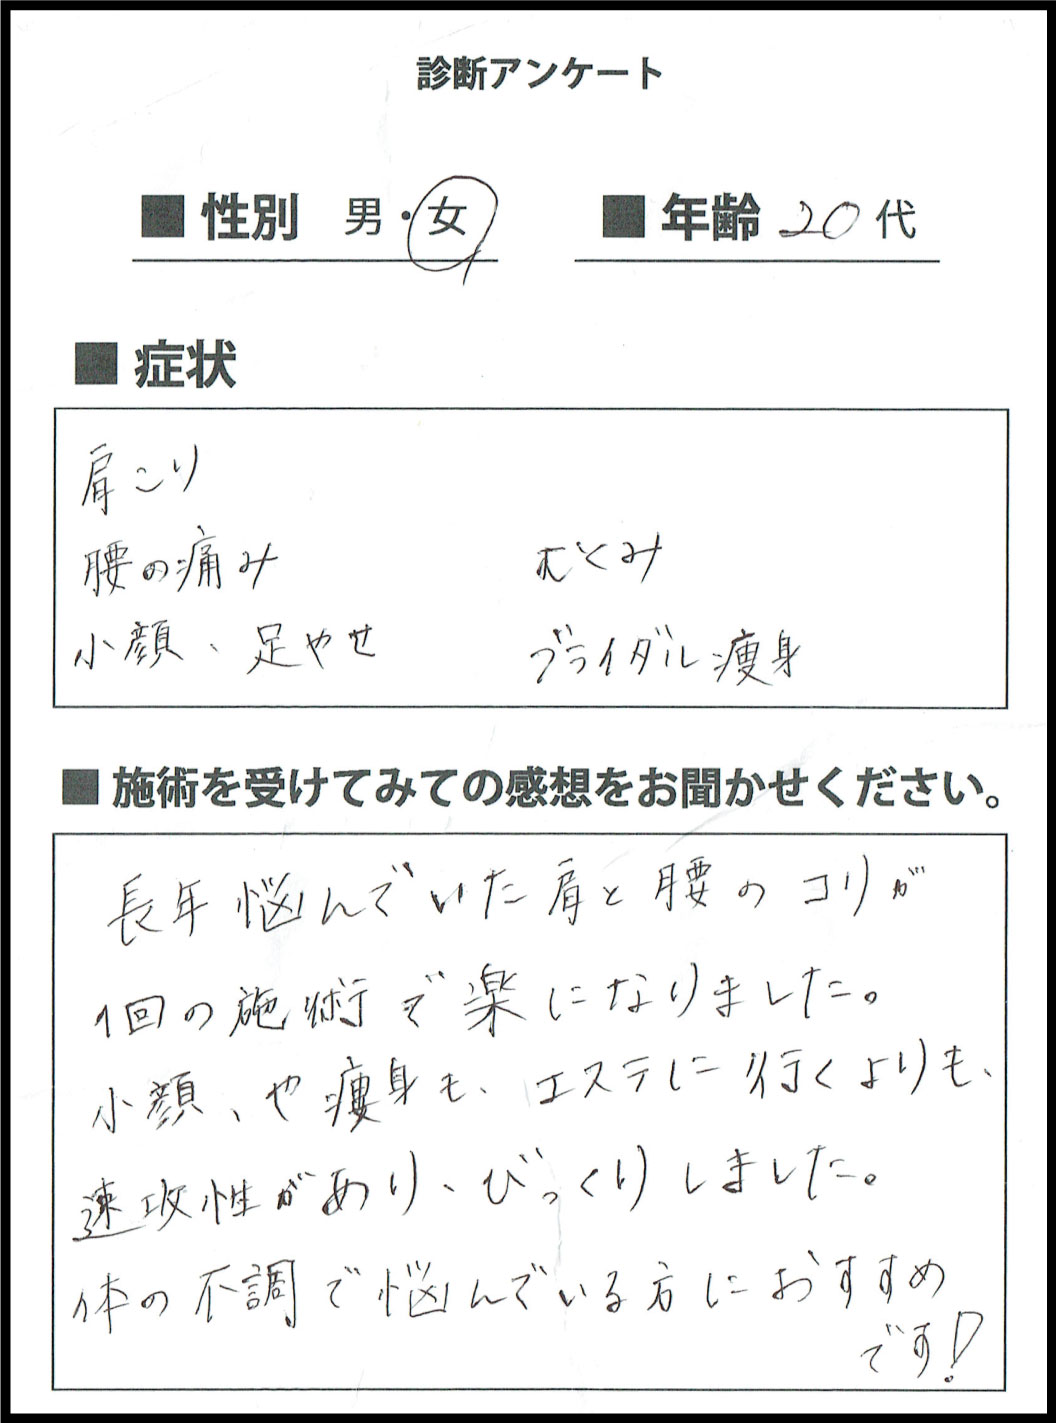 診断アンケート
■性別 男・女 ■年齢 20代
■症状
肩こり
腰の痛み むくみ
小顔、足やせ ブライダル痩身
■施術を受けてみての感想をお聞かせください。
長年悩んでいた肩と腰のコリが
1回の施術で楽になりました。
小顔、や痩身も、エステに行くよりも、
速攻性があり、びっくりしました。
体の不調で悩んでいる方におすすめ
です!